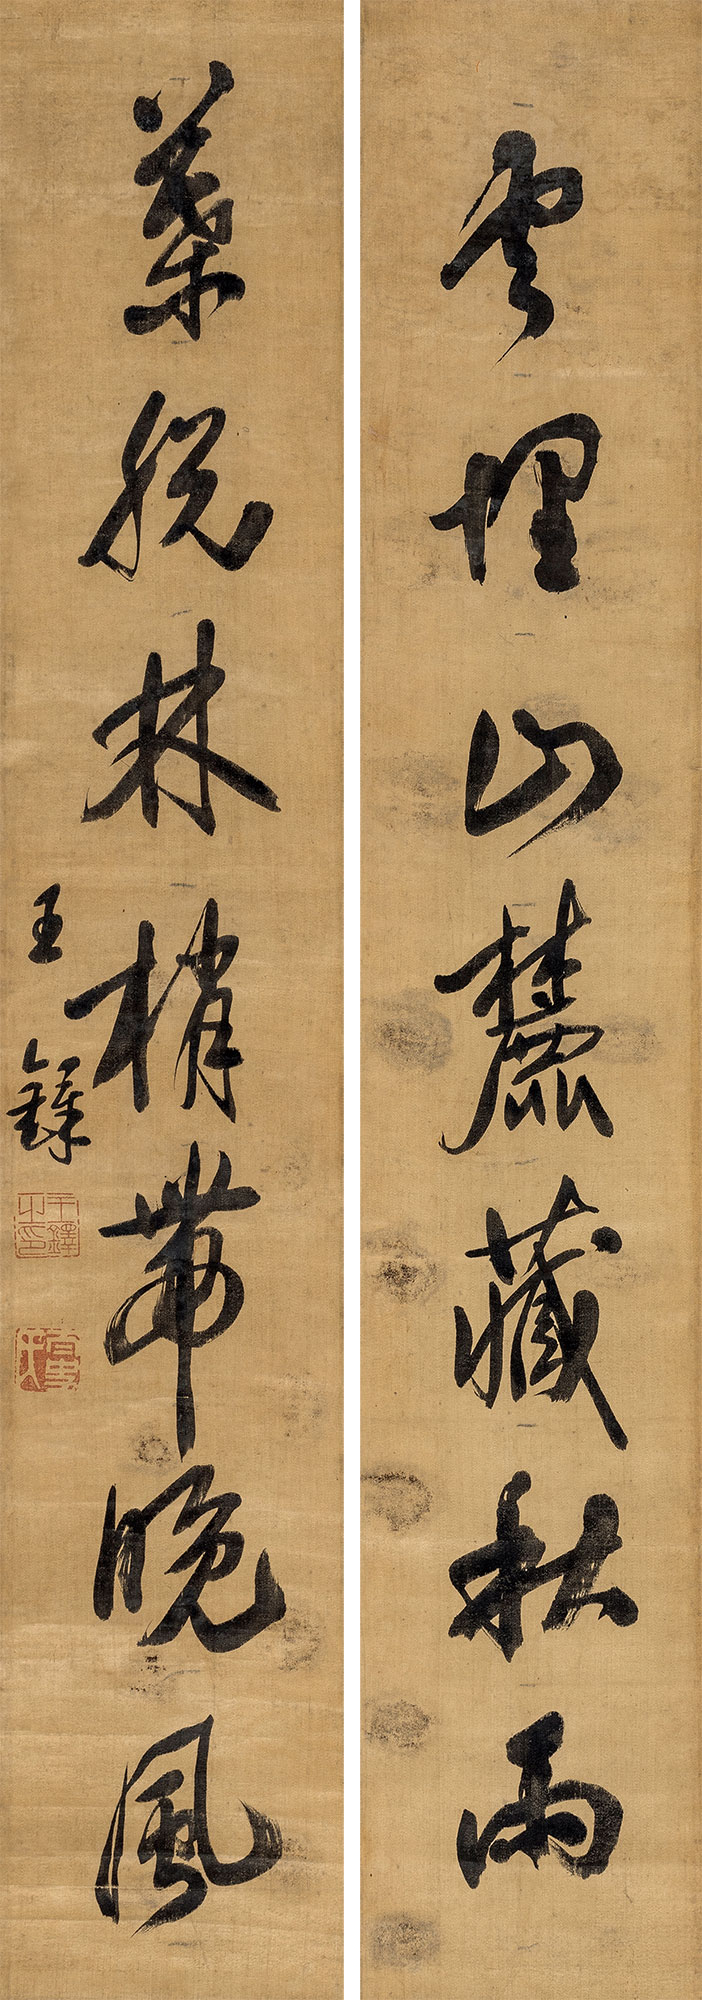 雲埋山麓藏秋雨
葉脫林梢帶晚風
王鐸
王鐸之印